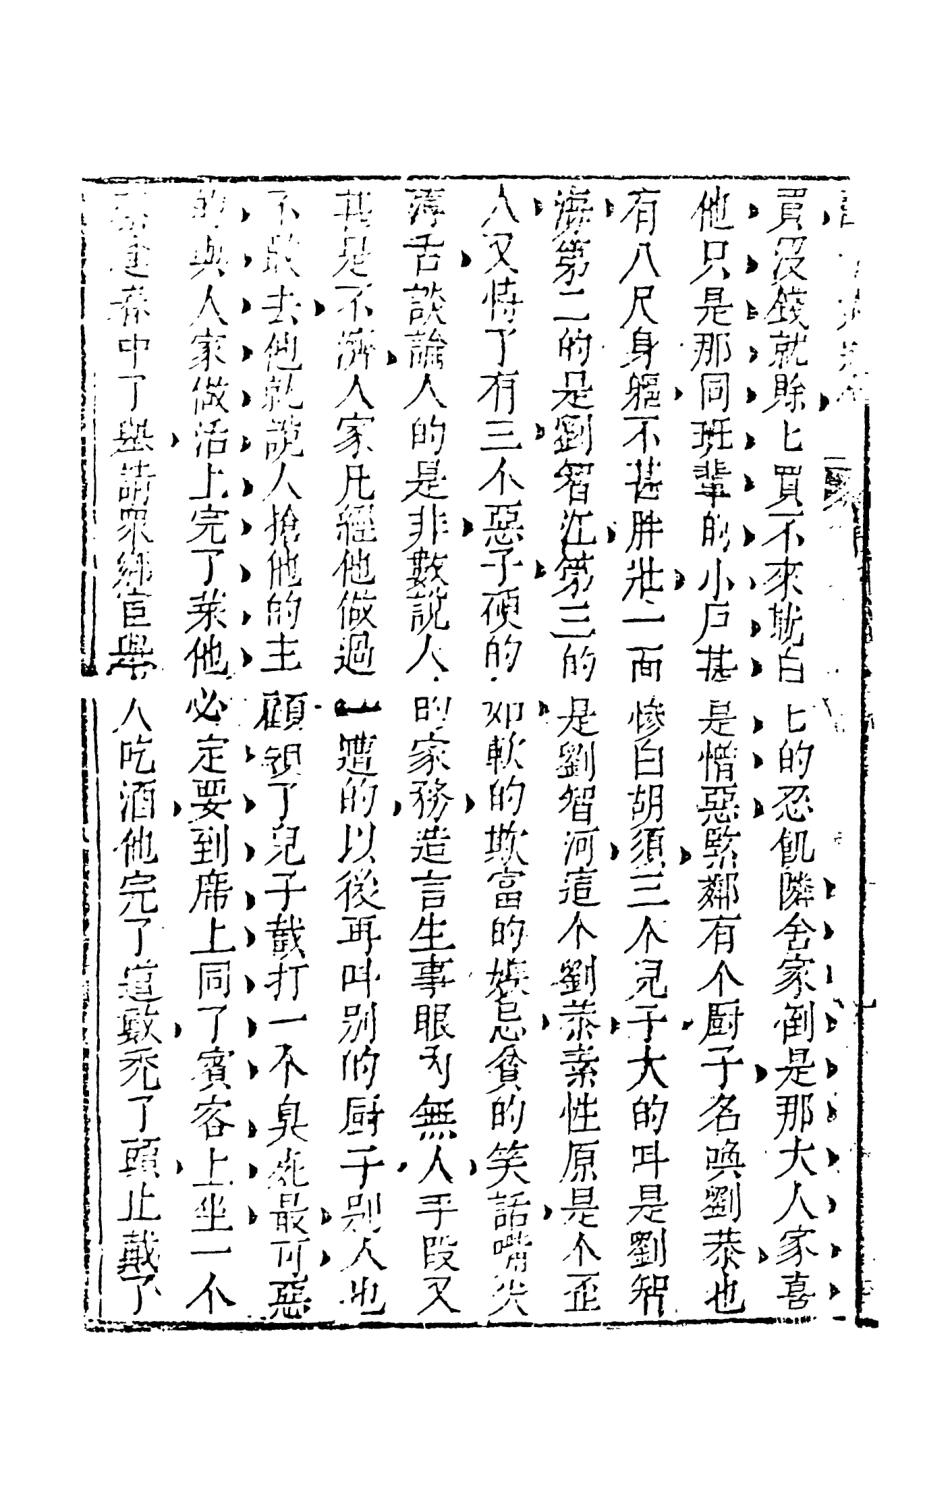 買没錢就賒匕買不來就白匕的忍飢隣舍家倒是那大人家喜
他只是那同班輩的小戶甚是憎惡緊鄰有个厨子名喚劉恭也
有八尺身軀不甚胖壯一面慘白胡須三个兒子大的叫是劉智
海第二的是劉智江第三的是劉智河這个劉恭素性原是个歪
人又恃了有三个惡子硬的𨚫軟的欺富的嫉忌貧的笑話嘴尖
薄舌談論人的是非數說人的家務造言生事眼内無人手段又
甚是不濟人家凡經他做過一遭的以後再叫別的厨子別人也
不敢去他就說人搶他的主顧領了兒子截打一不臭死最可惡
的與人家做活上完了菜他必定要到席上同了賓客上坐一个
蓬春中了舉請衆鄉宦舉人吃酒他完了這數禿了頭止戴了